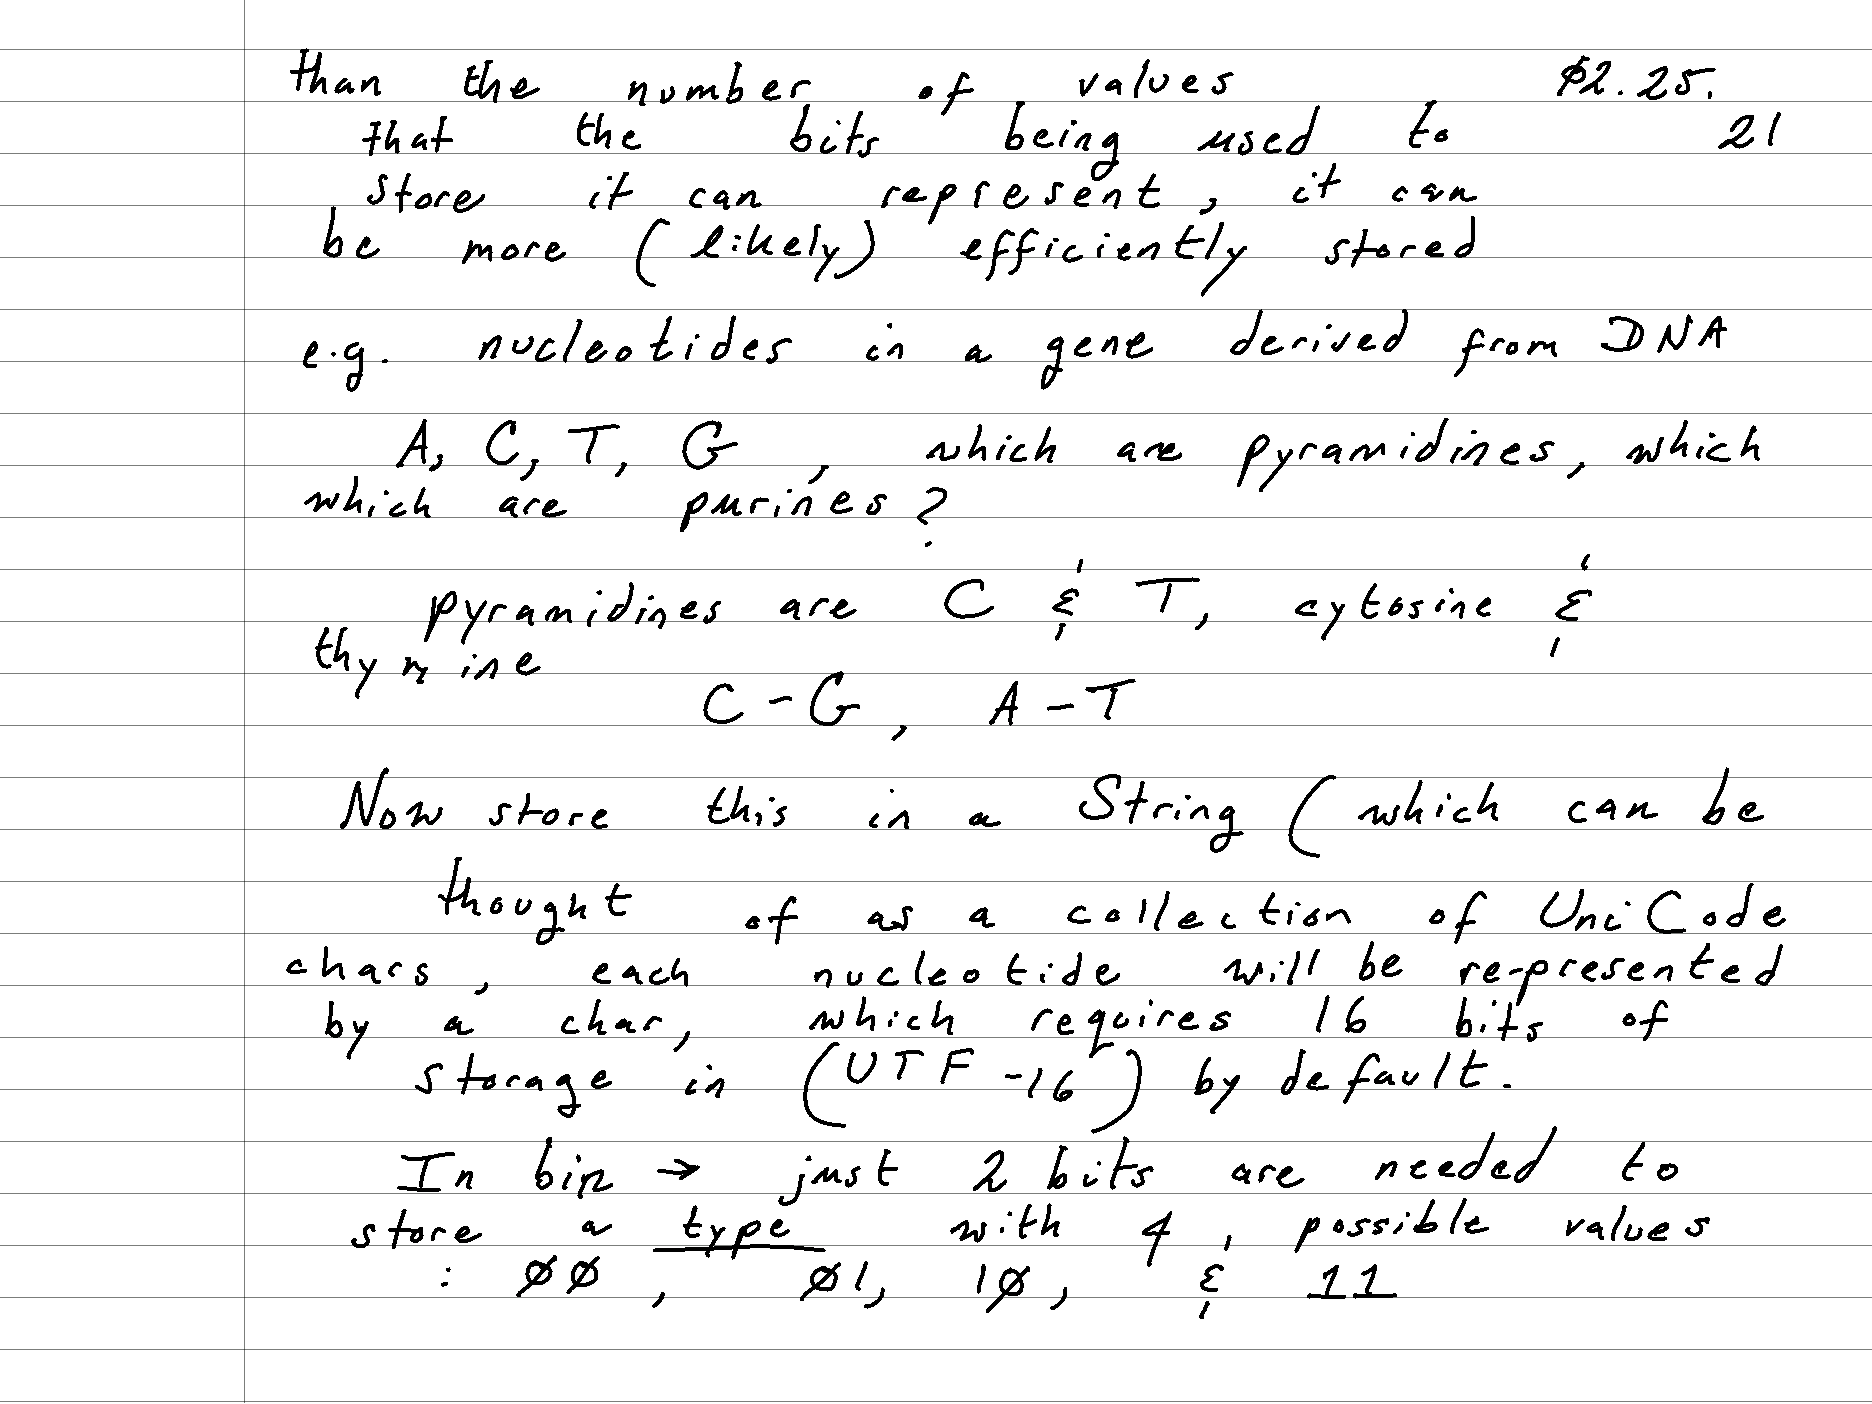 than the number of values ø2.25.
that the bits being used to 21
store it can represent, it can
be more (likely) efficiently stored
e.g. nucleotides in a gene derived from DNA
A, C, T, G, which are pyramidines, which
which are purines?
pyramidines are C & T, cytosine &
thymine
C-G, A-T
Now store this in a String (which can be
thought of as a collection of UniCode
chars, each nucleotide will be re-presented
by a char, which requires 16 bits of
storage in (UTF-16) by default.
In bin → just 2 bits are needed to
store a type with 4, possible values
: ØØ, Ø1, 1Ø, & 11